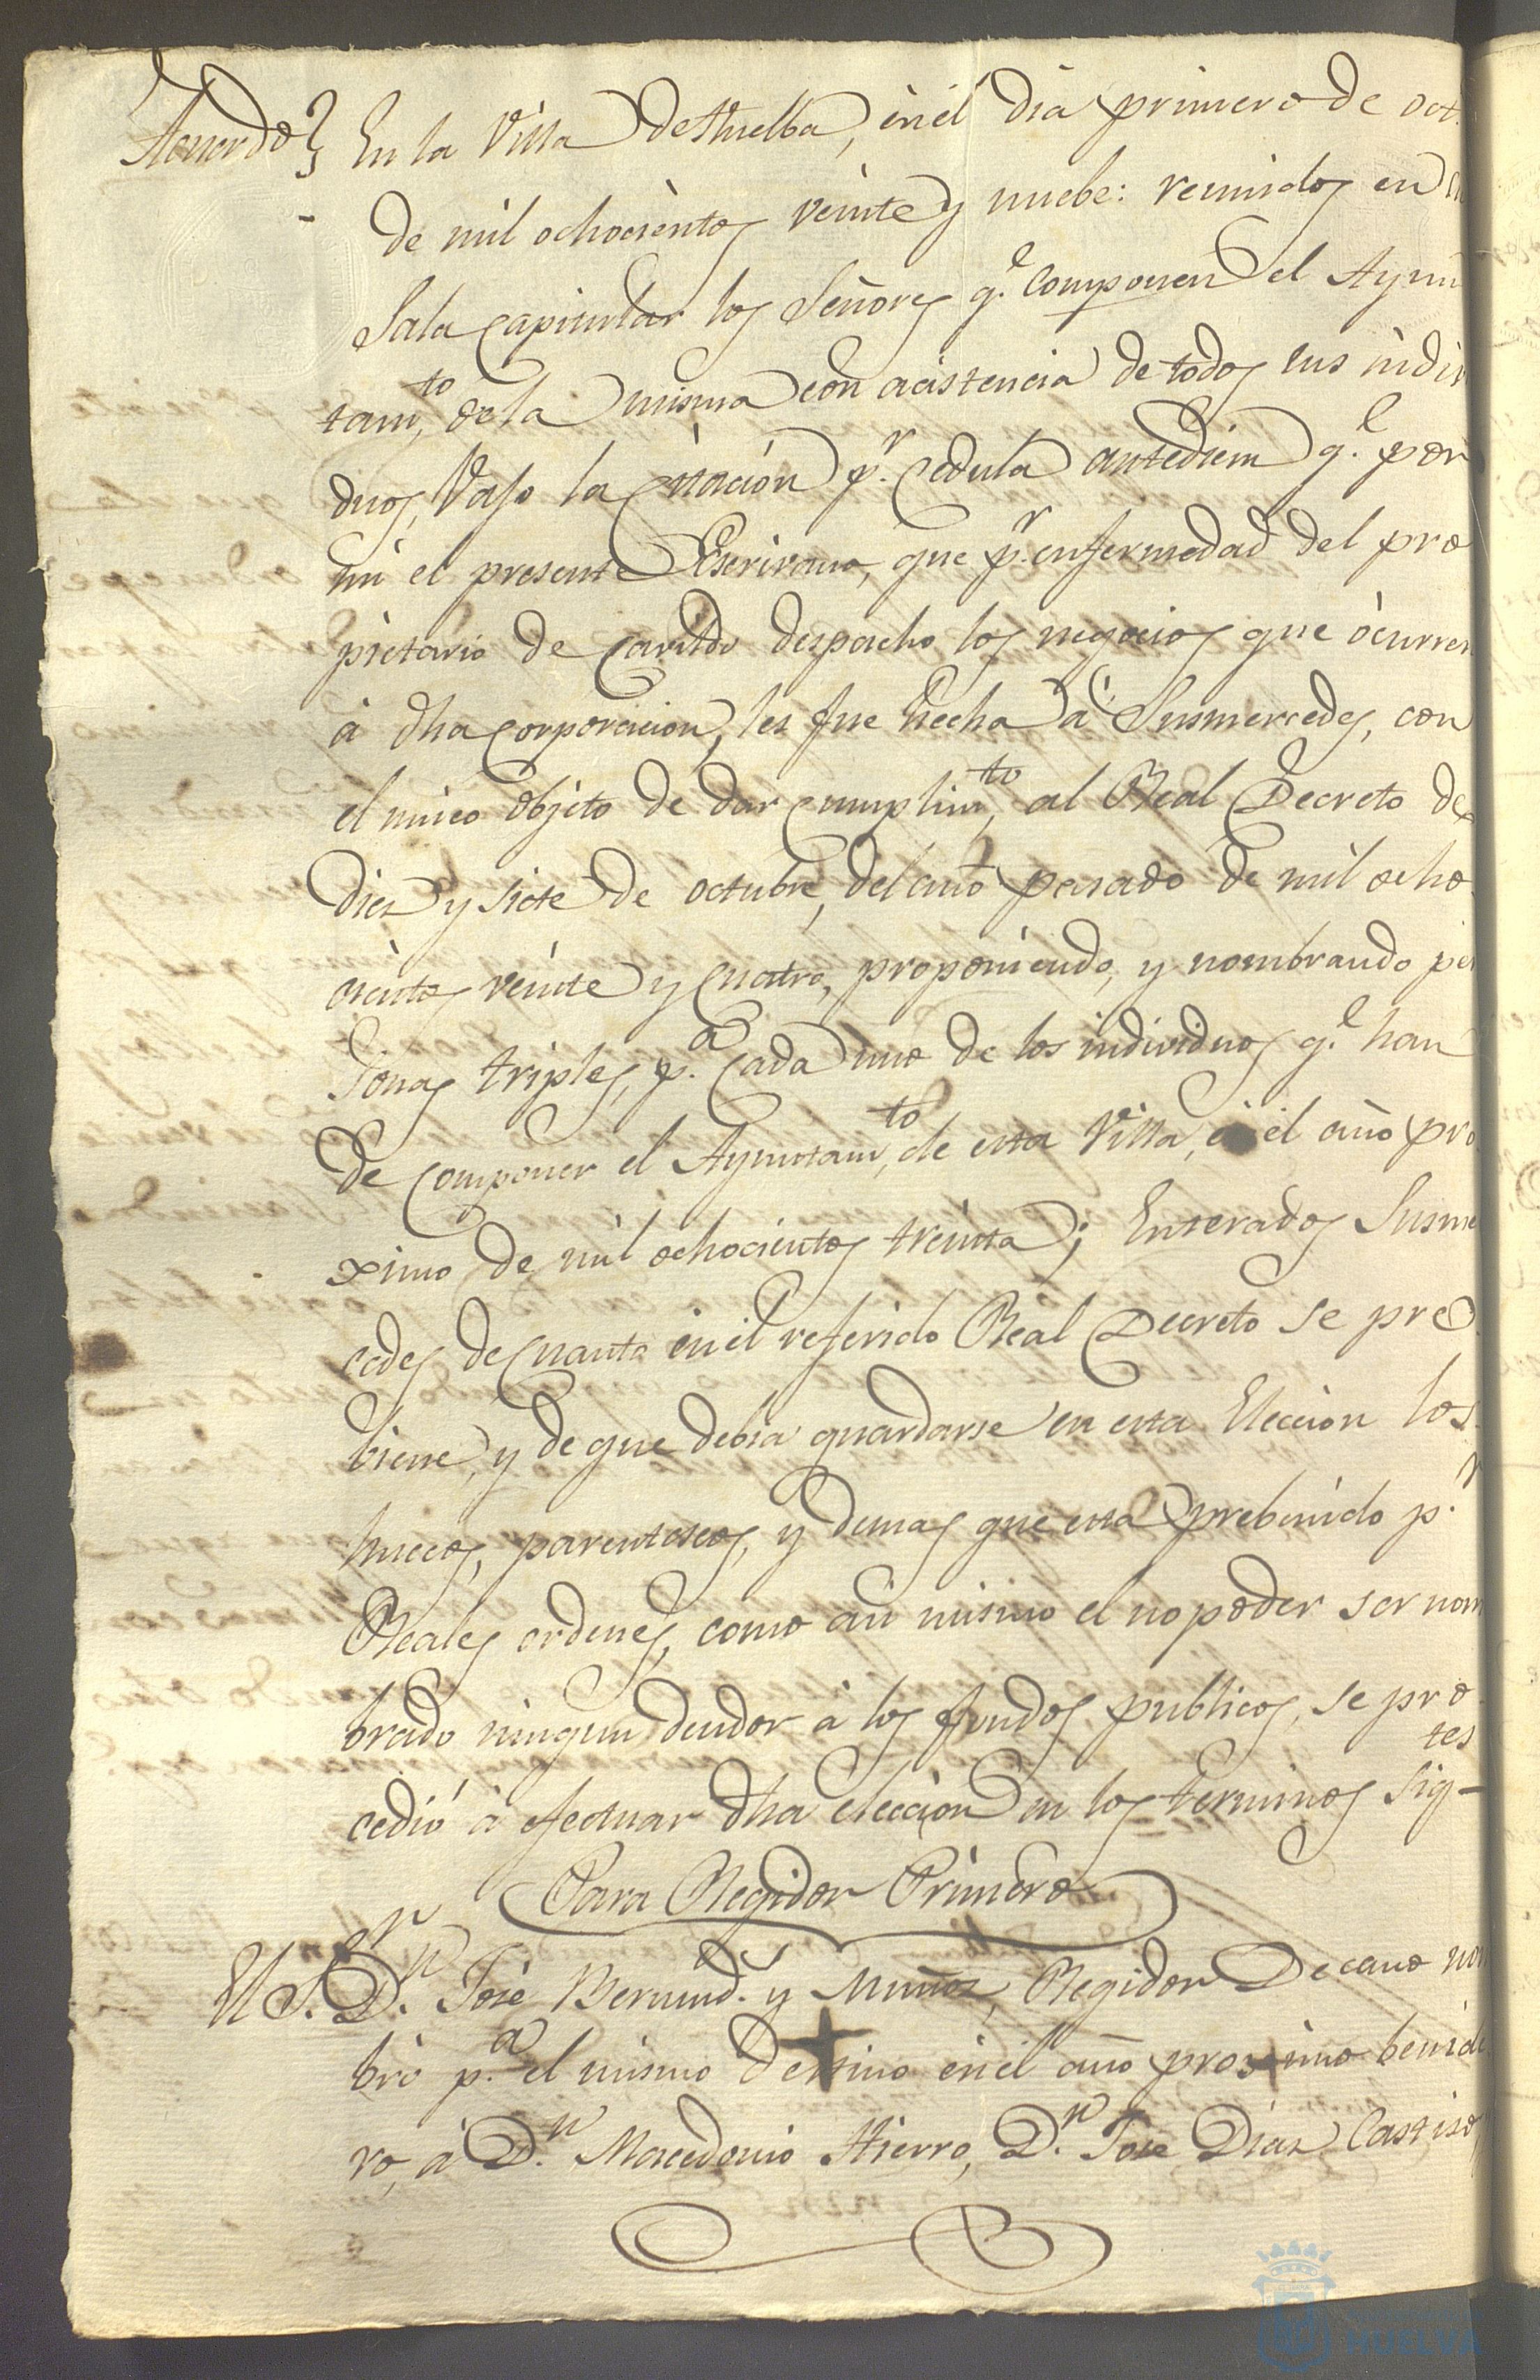 Acuerdo} En la Villa de Huelba, en el dia primero de oct.
de mil ochocientos veinte y nuebe: reunidos en
Sala capitular los Señores q.e componen el Ayun
tam.to de la misma con acistencia de todos sus indivi
duos, Vajo la citación p.r cedula antediem q.e por
mi el presente Escrivano, que p.r enfermedad del pro
pietario de Cavildo despacho los negocios que ocurren
à dha corporacion, les fue hecha à Susmercedes, con
el unico objeto de dar cumplim.to al Real Decreto de
diez y siete de octubre, del año pasado de mil ocho
cientos veinte y cuatro, proponiendo, y nombrando per
sonas triples, p.a cada uno de los individuos q.e han
de componer el Ayuntam.to de esta Villa, en el año pro
ximo de mil ochocientos treinta; Enterados Susmer
cedes de cuanto en el referido Real Decreto se pre
biene, y de que debia guardarse en esta Eleccion los
huecos, parentescos, y demas que esta prebenido p.r
Reales ordenes, como asi mismo el no poder ser nom
brado ningun deudor à los fondos publicos, se pro
cedió à efectuar dha elección en los terminos sig-tes
Para Regidor Primero
El S.r D.n José Bermud.s y Muñoz, Regidor Decano nom
bró p.a el mismo destino en el año proximo benide
ro, à D.n Macedonio Hierro, D.n Jose Diaz Castiso,
HUELVA